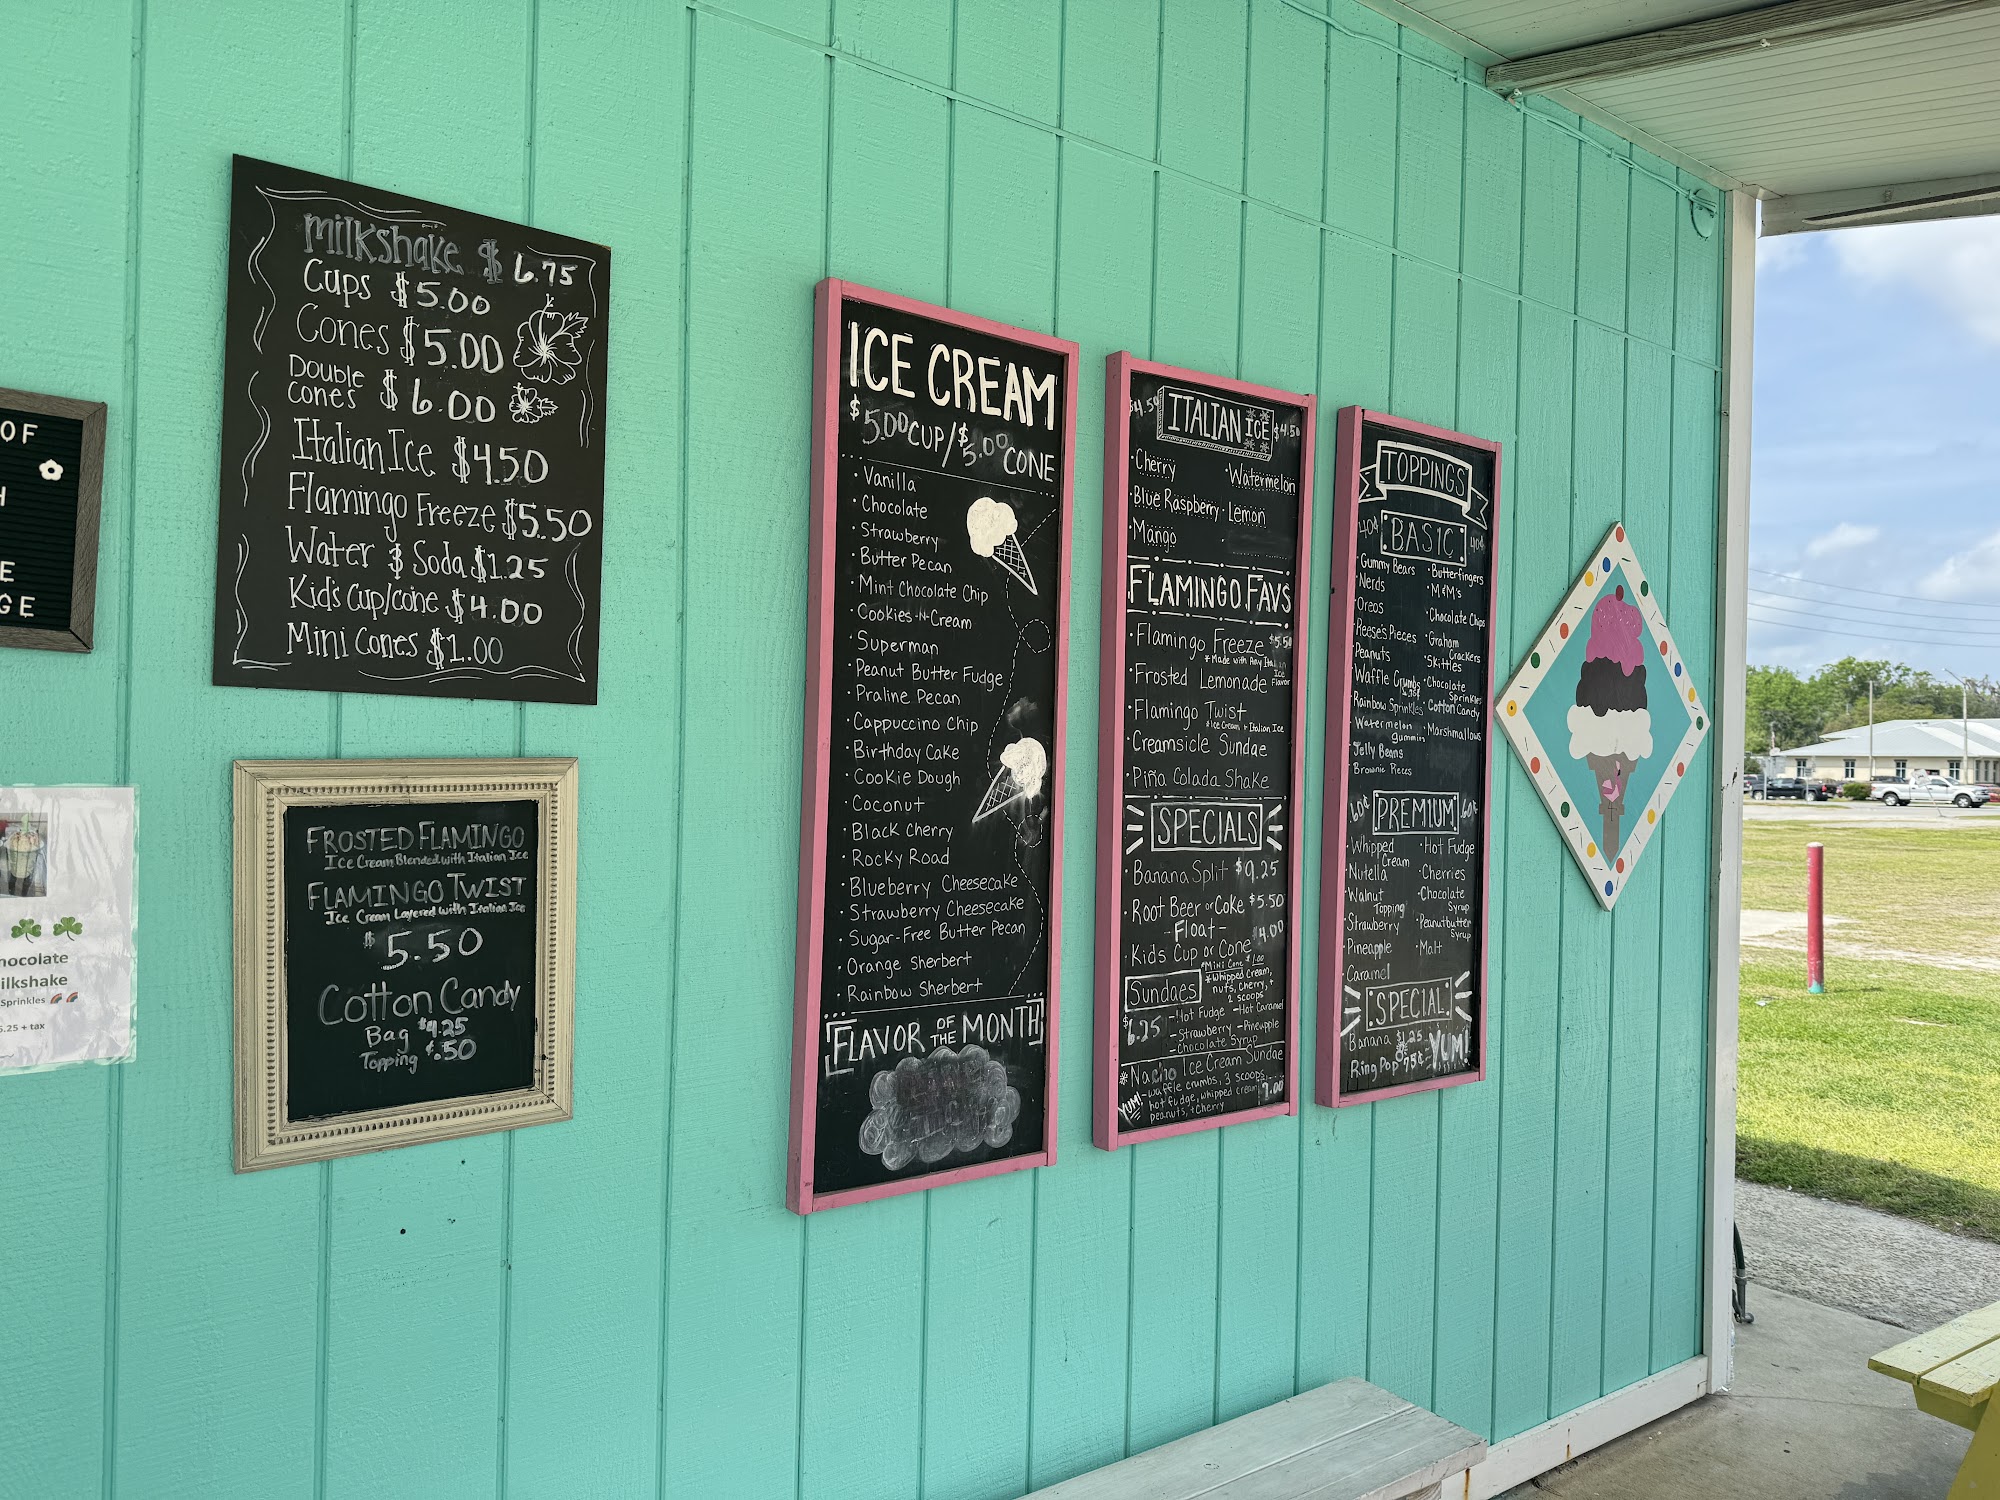 OF
H
E
GE
hocolate
ilkshake
Sprinkles
.25 + tax
Milkshake $ 6.75
Cups $5.00
Cones $5.00
Double Cones $6.00
Italian Ice $4.50
Flamingo Freeze $5.50
Water & Soda $1.25
Kid's Cup/cone $4.00
Mini Cones $1.00
FROSTED FLAMINGO
Ice Cream Blended with Italian Ice
FLAMINGO TWIST
Ice Cream Layered with Italian Ice
$5.50
Cotton Candy
Bag $4.25
Topping $.50
ICE CREAM
$5.00 CUP/$5.00 CONE
· Vanilla
· Chocolate
· Strawberry
· Butter Pecan
· Mint Chocolate Chip
· Cookies-N-Cream
· Superman
· Peanut Butter Fudge
· Praline Pecan
· Cappuccino Chip
· Birthday Cake
· Cookie Dough
· Coconut
· Black Cherry
· Rocky Road
· Blueberry Cheesecake
· Strawberry Cheesecake
· Sugar-Free Butter Pecan
· Orange Sherbert
· Rainbow Sherbert
FLAVOR OF THE MONTH
$4.50 ITALIAN ICE $4.50
· Cherry · Watermelon
· Blue Raspberry · Lemon
· Mango
FLAMINGO FAVS
· Flamingo Freeze $5.50
* Made with Any Italian Ice Flavor
· Frosted Lemonade
· Flamingo Twist
* Ice Cream + Italian Ice
· Creamsicle Sundae
· Piña Colada Shake
SPECIALS
· Banana Split $9.25
· Root Beer or Coke $5.50
- Float -
· Kids Cup or Cone $4.00
* Mini Cone $1.00
Sundaes * Whipped Cream, nuts, cherry, + 2 scoops
$6.25 - Hot Fudge - Hot Caramel
- Strawberry - Pineapple
- Chocolate Syrup
* Nacho Ice Cream Sundae
YUM! - waffle crumbs, 3 scoops
hot fudge, whipped cream 9.00
peanuts, + Cherry
TOPPINGS
40¢ BASIC 40¢
· Gummy Bears · Butterfingers
· Nerds · M&M's
· Oreos · Chocolate Chips
· Reese's Pieces · Graham Crackers
· Peanuts · Skittles
· Waffle Crumbs · Chocolate Sprinkles
· Rainbow Sprinkles · Cotton Candy
· Watermelon gummies · Marshmallows
· Jelly Beans
· Brownie Pieces
60¢ PREMIUM 60¢
· Whipped Cream · Hot Fudge
· Nutella · Cherries
· Walnut Topping · Chocolate Syrup
· Strawberry · Peanutbutter Syrup
· Pineapple · Malt
· Caramel
SPECIAL
Banana $1.25
Ring Pop 75¢ YUM!